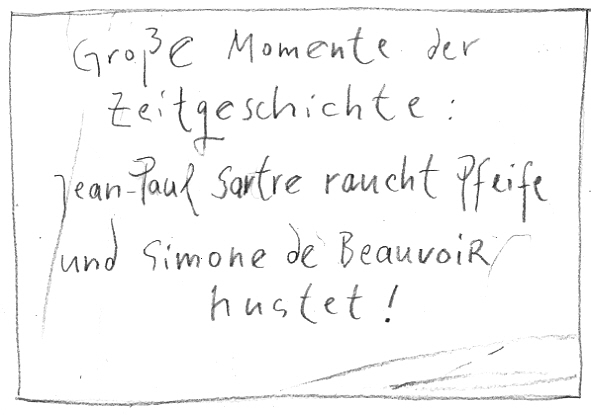 Große Momente der
Zeitgeschichte:
Jean-Paul Sartre raucht Pfeife
und Simone de Beauvoir
hustet!